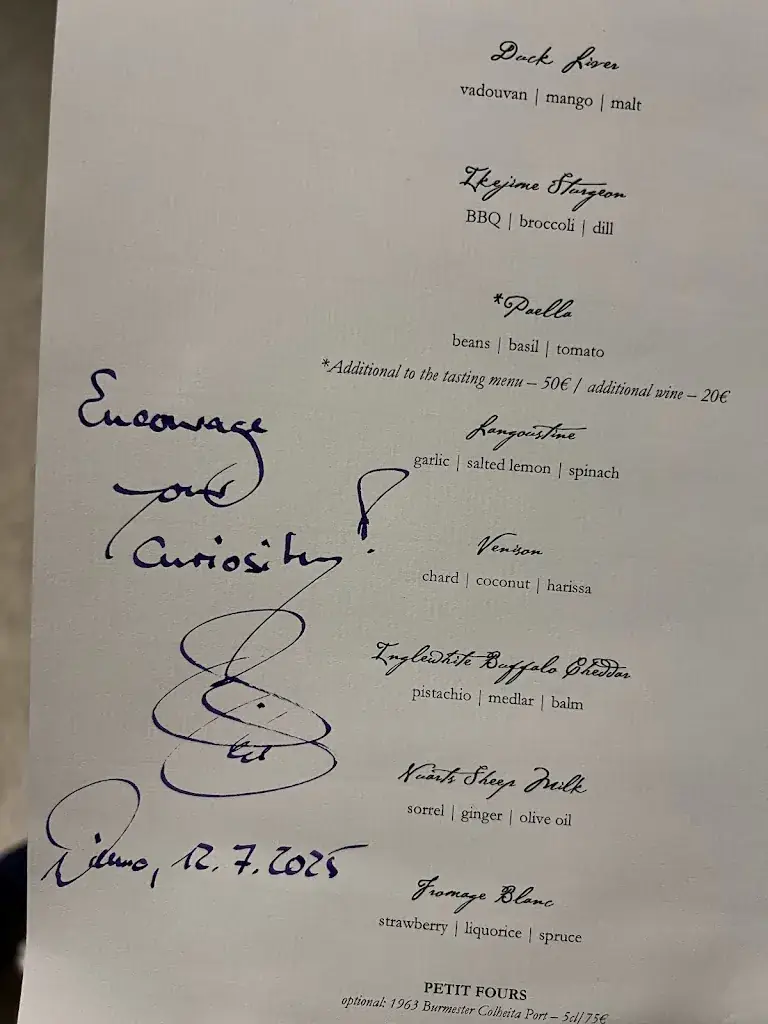 Duck Liver
vadouvan | mango | malt
Ikejime Sturgeon
BBQ | broccoli | dill
*Paella
beans | basil | tomato
*Additional to the tasting menu – 50€ / additional wine – 20€
Langoustine
garlic | salted lemon | spinach
Venison
chard | coconut | harissa
Inglewhite Buffalo Cheddar
pistachio | medlar | balm
Nuarts Sheep Milk
sorrel | ginger | olive oil
Fromage Blanc
strawberry | liquorice | spruce
PETIT FOURS
optional: 1963 Burmester Colheita Port – 5cl/75€
Encourage
your
Curiosity!
12.7.2025